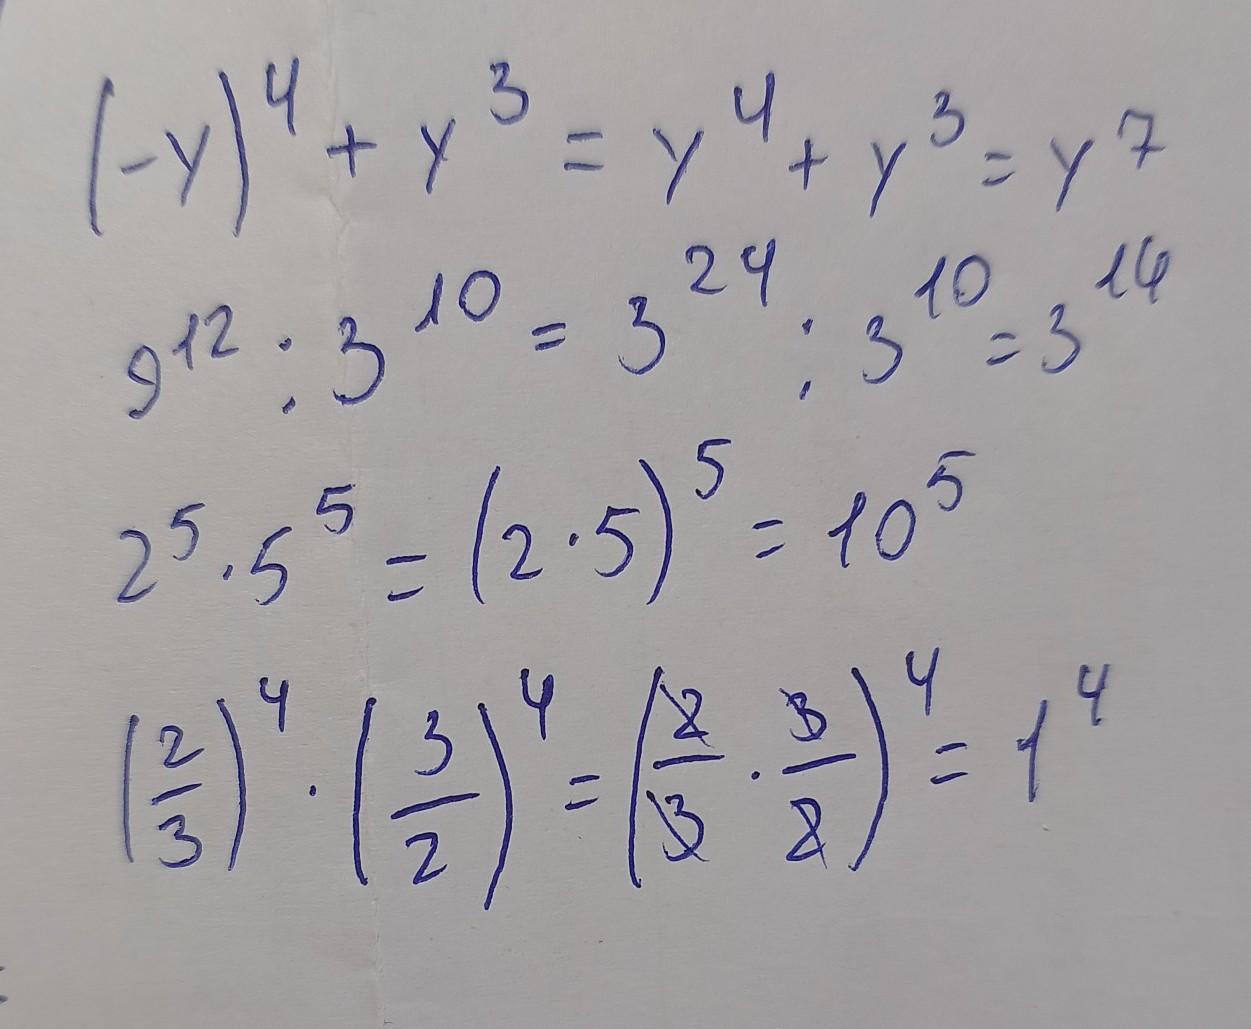 (-y)⁴ + y³ = y⁴ + y³ = y⁷
9¹² : 3¹⁰ = 3²⁴ : 3¹⁰ = 3¹⁴
2⁵ · 5⁵ = (2 · 5)⁵ = 10⁵
(2/3)⁴ · (3/2)⁴ = (2/3 · 3/2)⁴ = 1⁴